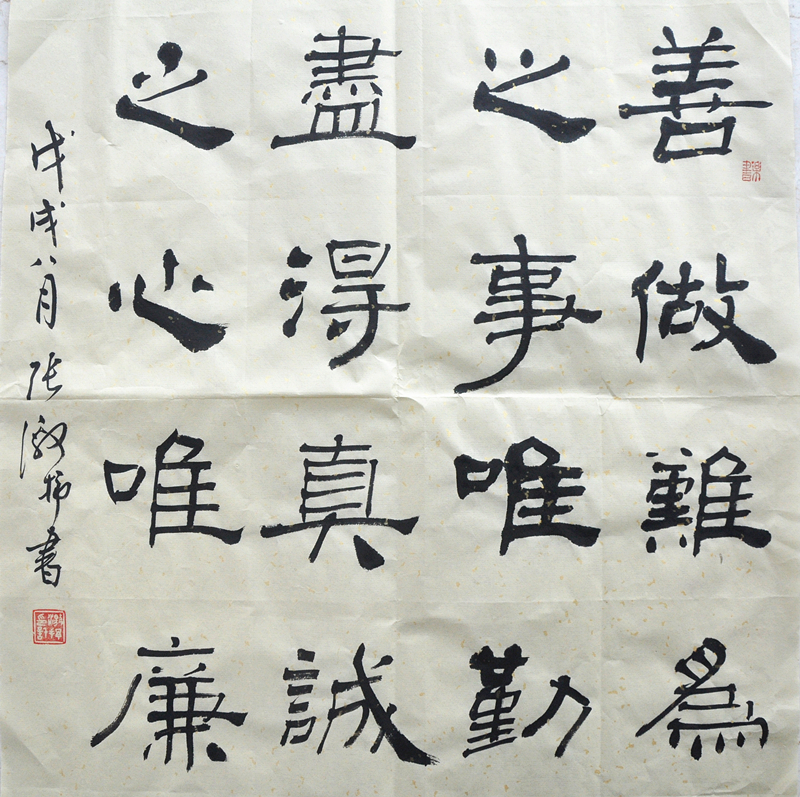 善做難為
之事唯勤
盡得真誠
之心唯廉
戊戌八月張澂㧑書